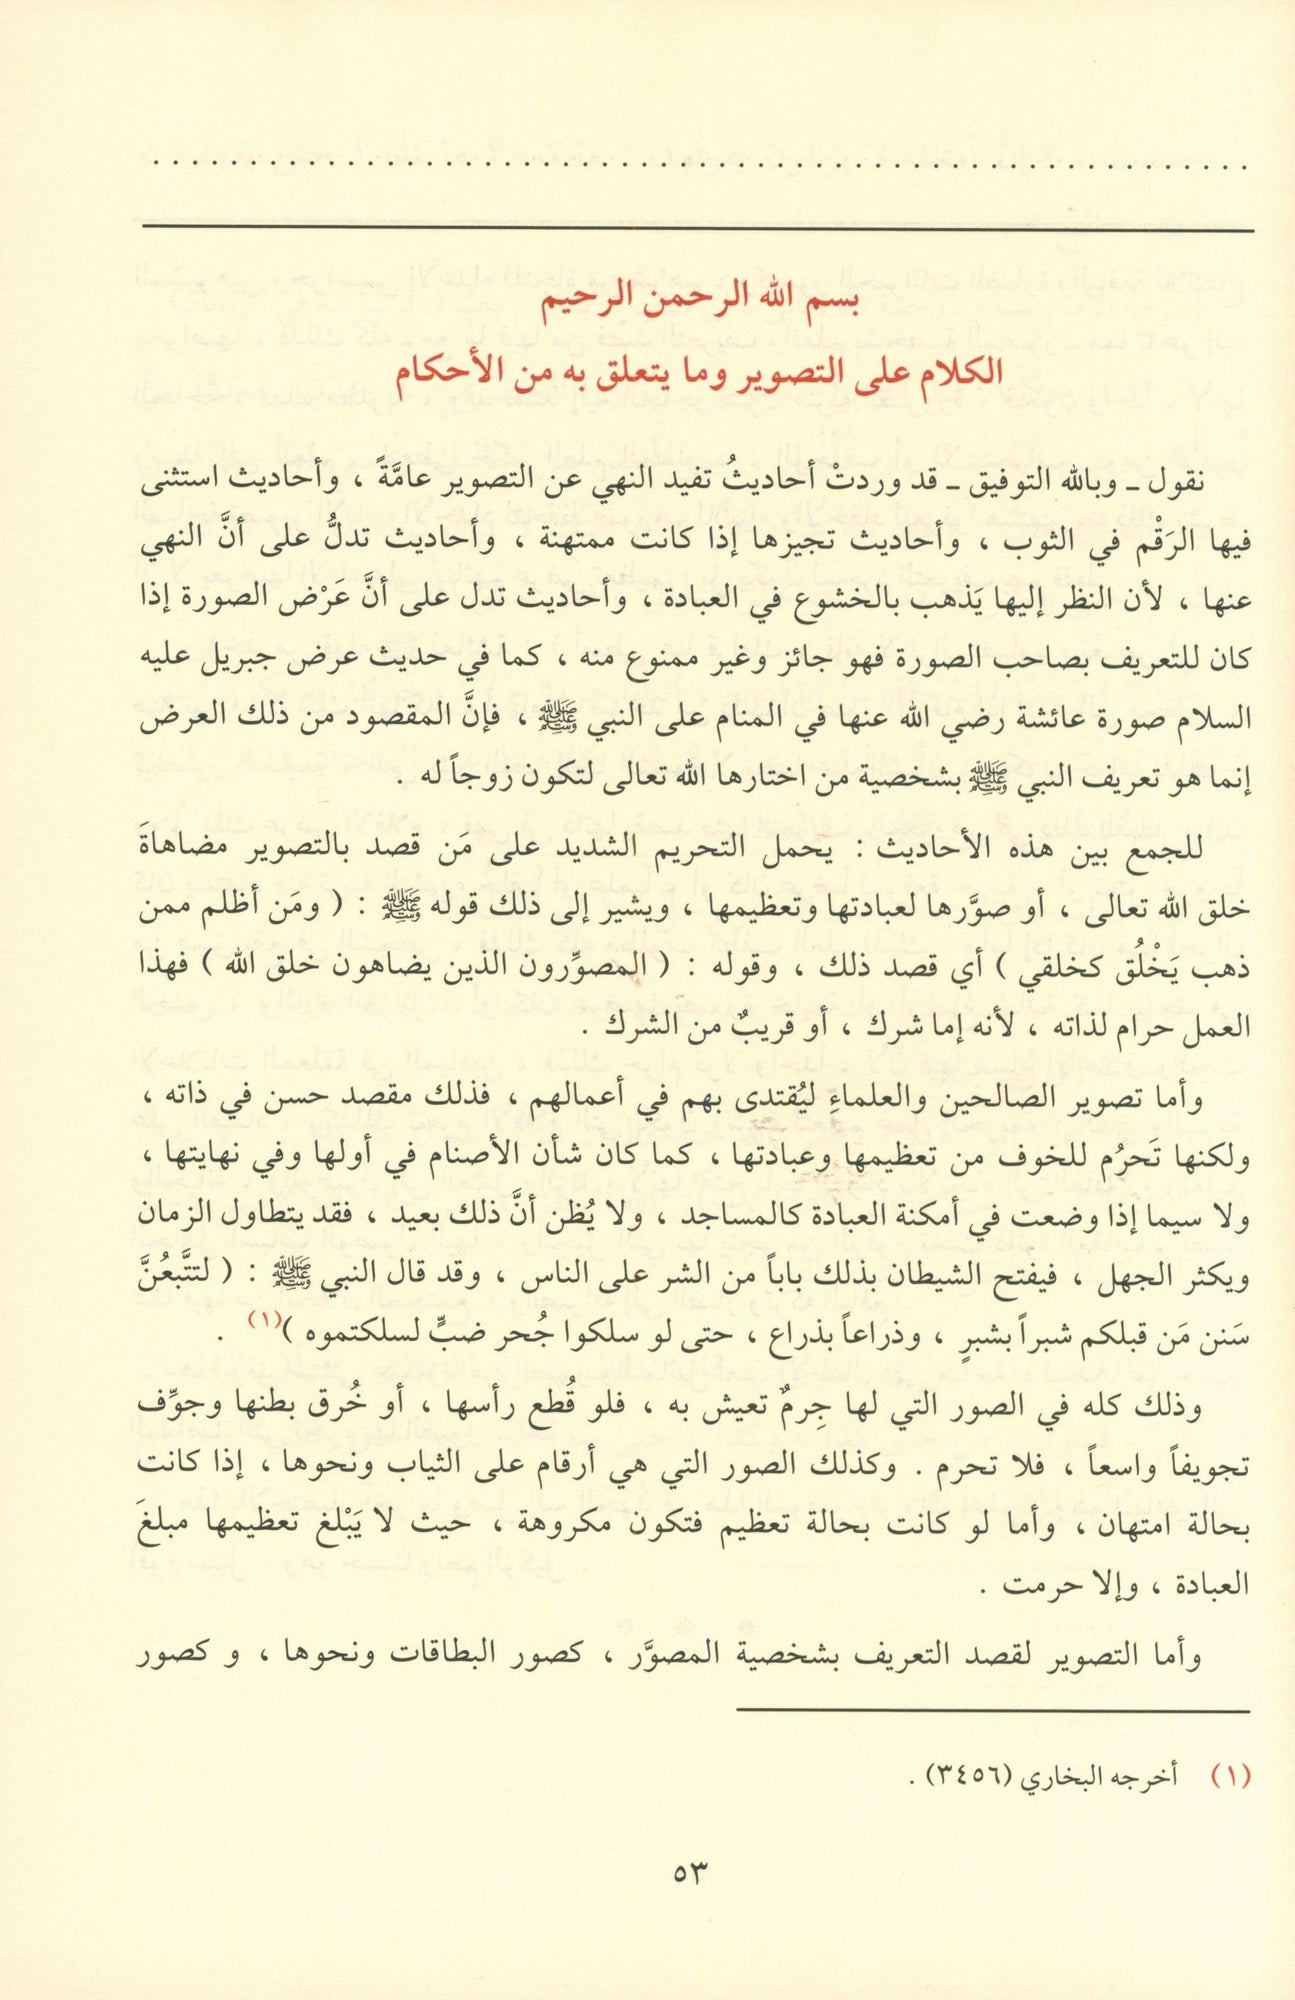 بسم الله الرحمن الرحيم
الكلام على التصوير وما يتعلق به من الأحكام
نقول ـ وبالله التوفيق ـ قد وردتْ أحاديثُ تفيد النهي عن التصوير عامَّةً ، وأحاديث استثنى
فيها الرَقْم في الثوب ، وأحاديث تجيزها إذا كانت ممتهنة ، وأحاديث تدلُّ على أنَّ النهي
عنها ، لأن النظر إليها يَذهب بالخشوع في العبادة ، وأحاديث تدل على أنَّ عَرْض الصورة إذا
كان للتعريف بصاحب الصورة فهو جائز وغير ممنوع منه ، كما في حديث عرض جبريل عليه
السلام صورة عائشة رضي الله عنها في المنام على النبي ﷺ ، فإنَّ المقصود من ذلك العرض
إنما هو تعريف النبي ﷺ بشخصية من اختارها الله تعالى لتكون زوجاً له .
للجمع بين هذه الأحاديث : يحمل التحريم الشديد على مَن قصد بالتصوير مضاهاةَ
خلق الله تعالى ، أو صوَّرها لعبادتها وتعظيمها ، ويشير إلى ذلك قوله ﷺ : ( ومَن أظلم ممن
ذهب يَخْلُق كخلقي ) أي قصد ذلك ، وقوله : ( المصوِّرون الذين يضاهون خلق الله ) فهذا
العمل حرام لذاته ، لأنه إما شرك ، أو قريبٌ من الشرك .
وأما تصوير الصالحين والعلماءِ ليُقتدى بهم في أعمالهم ، فذلك مقصد حسن في ذاته ،
ولكنها تَحرُم للخوف من تعظيمها وعبادتها ، كما كان شأن الأصنام في أولها وفي نهايتها ،
ولا سيما إذا وضعت في أمكنة العبادة كالمساجد ، ولا يُظن أنَّ ذلك بعيد ، فقد يتطاول الزمان
ويكثر الجهل ، فيفتح الشيطان بذلك باباً من الشر على الناس ، وقد قال النبي ﷺ : ( لتتَّبعُنَّ
سَنن مَن قبلكم شبراً بشبرٍ ، وذراعاً بذراع ، حتى لو سلكوا جُحر ضبٍّ لسلكتموه )(١) .
وذلك كله في الصور التي لها جِرمٌ تعيش به ، فلو قُطع رأسها ، أو خُرق بطنها وجوِّف
تجويفاً واسعاً ، فلا تحرم . وكذلك الصور التي هي أرقام على الثياب ونحوها ، إذا كانت
بحالة امتهان ، وأما لو كانت بحالة تعظيم فتكون مكروهة ، حيث لا يَبْلغ تعظيمها مبلغَ
العبادة ، وإلا حرمت .
وأما التصوير لقصد التعريف بشخصية المصوَّر ، كصور البطاقات ونحوها ، و كصور
(١) أخرجه البخاري (٣٤٥٦) .
٥٣